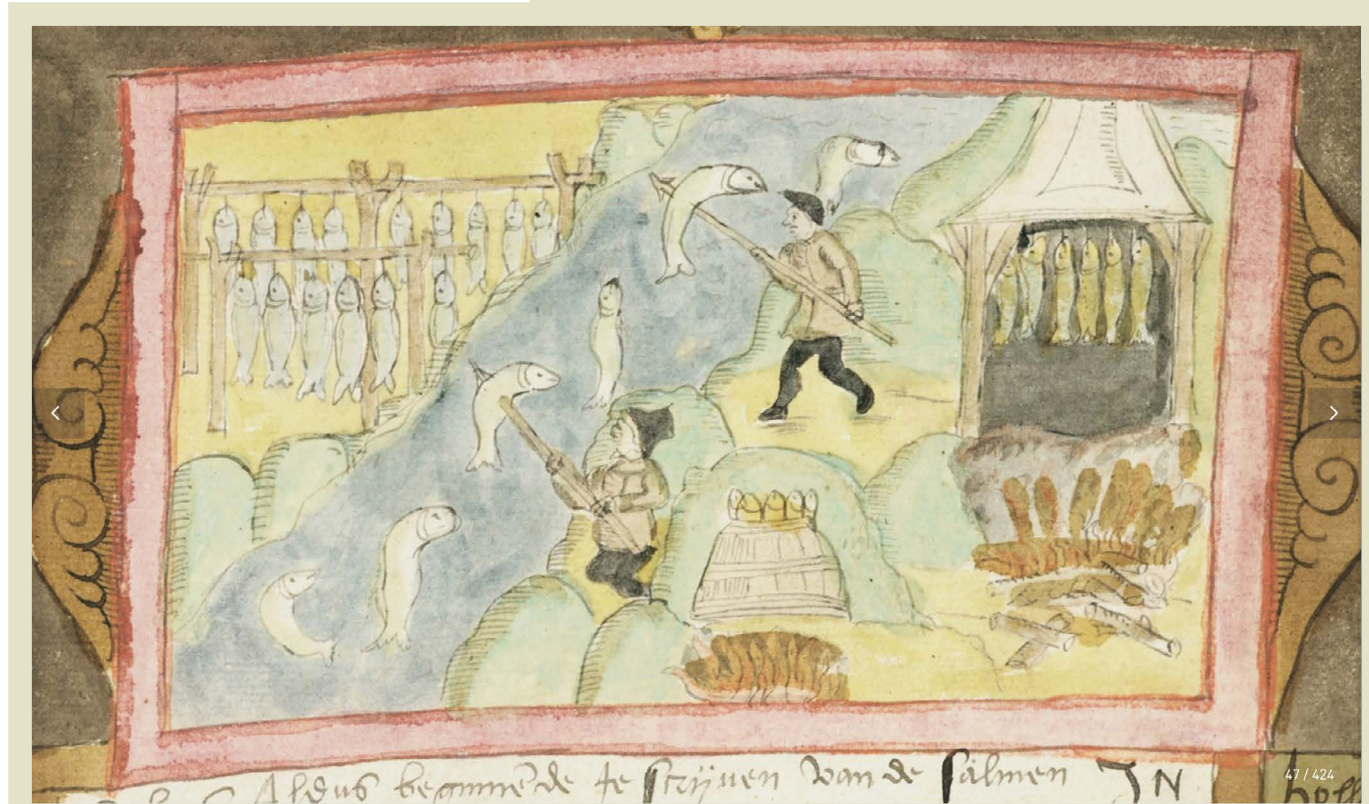 Aldus beginnēde te scrijven van de salmen IN
47 / 424